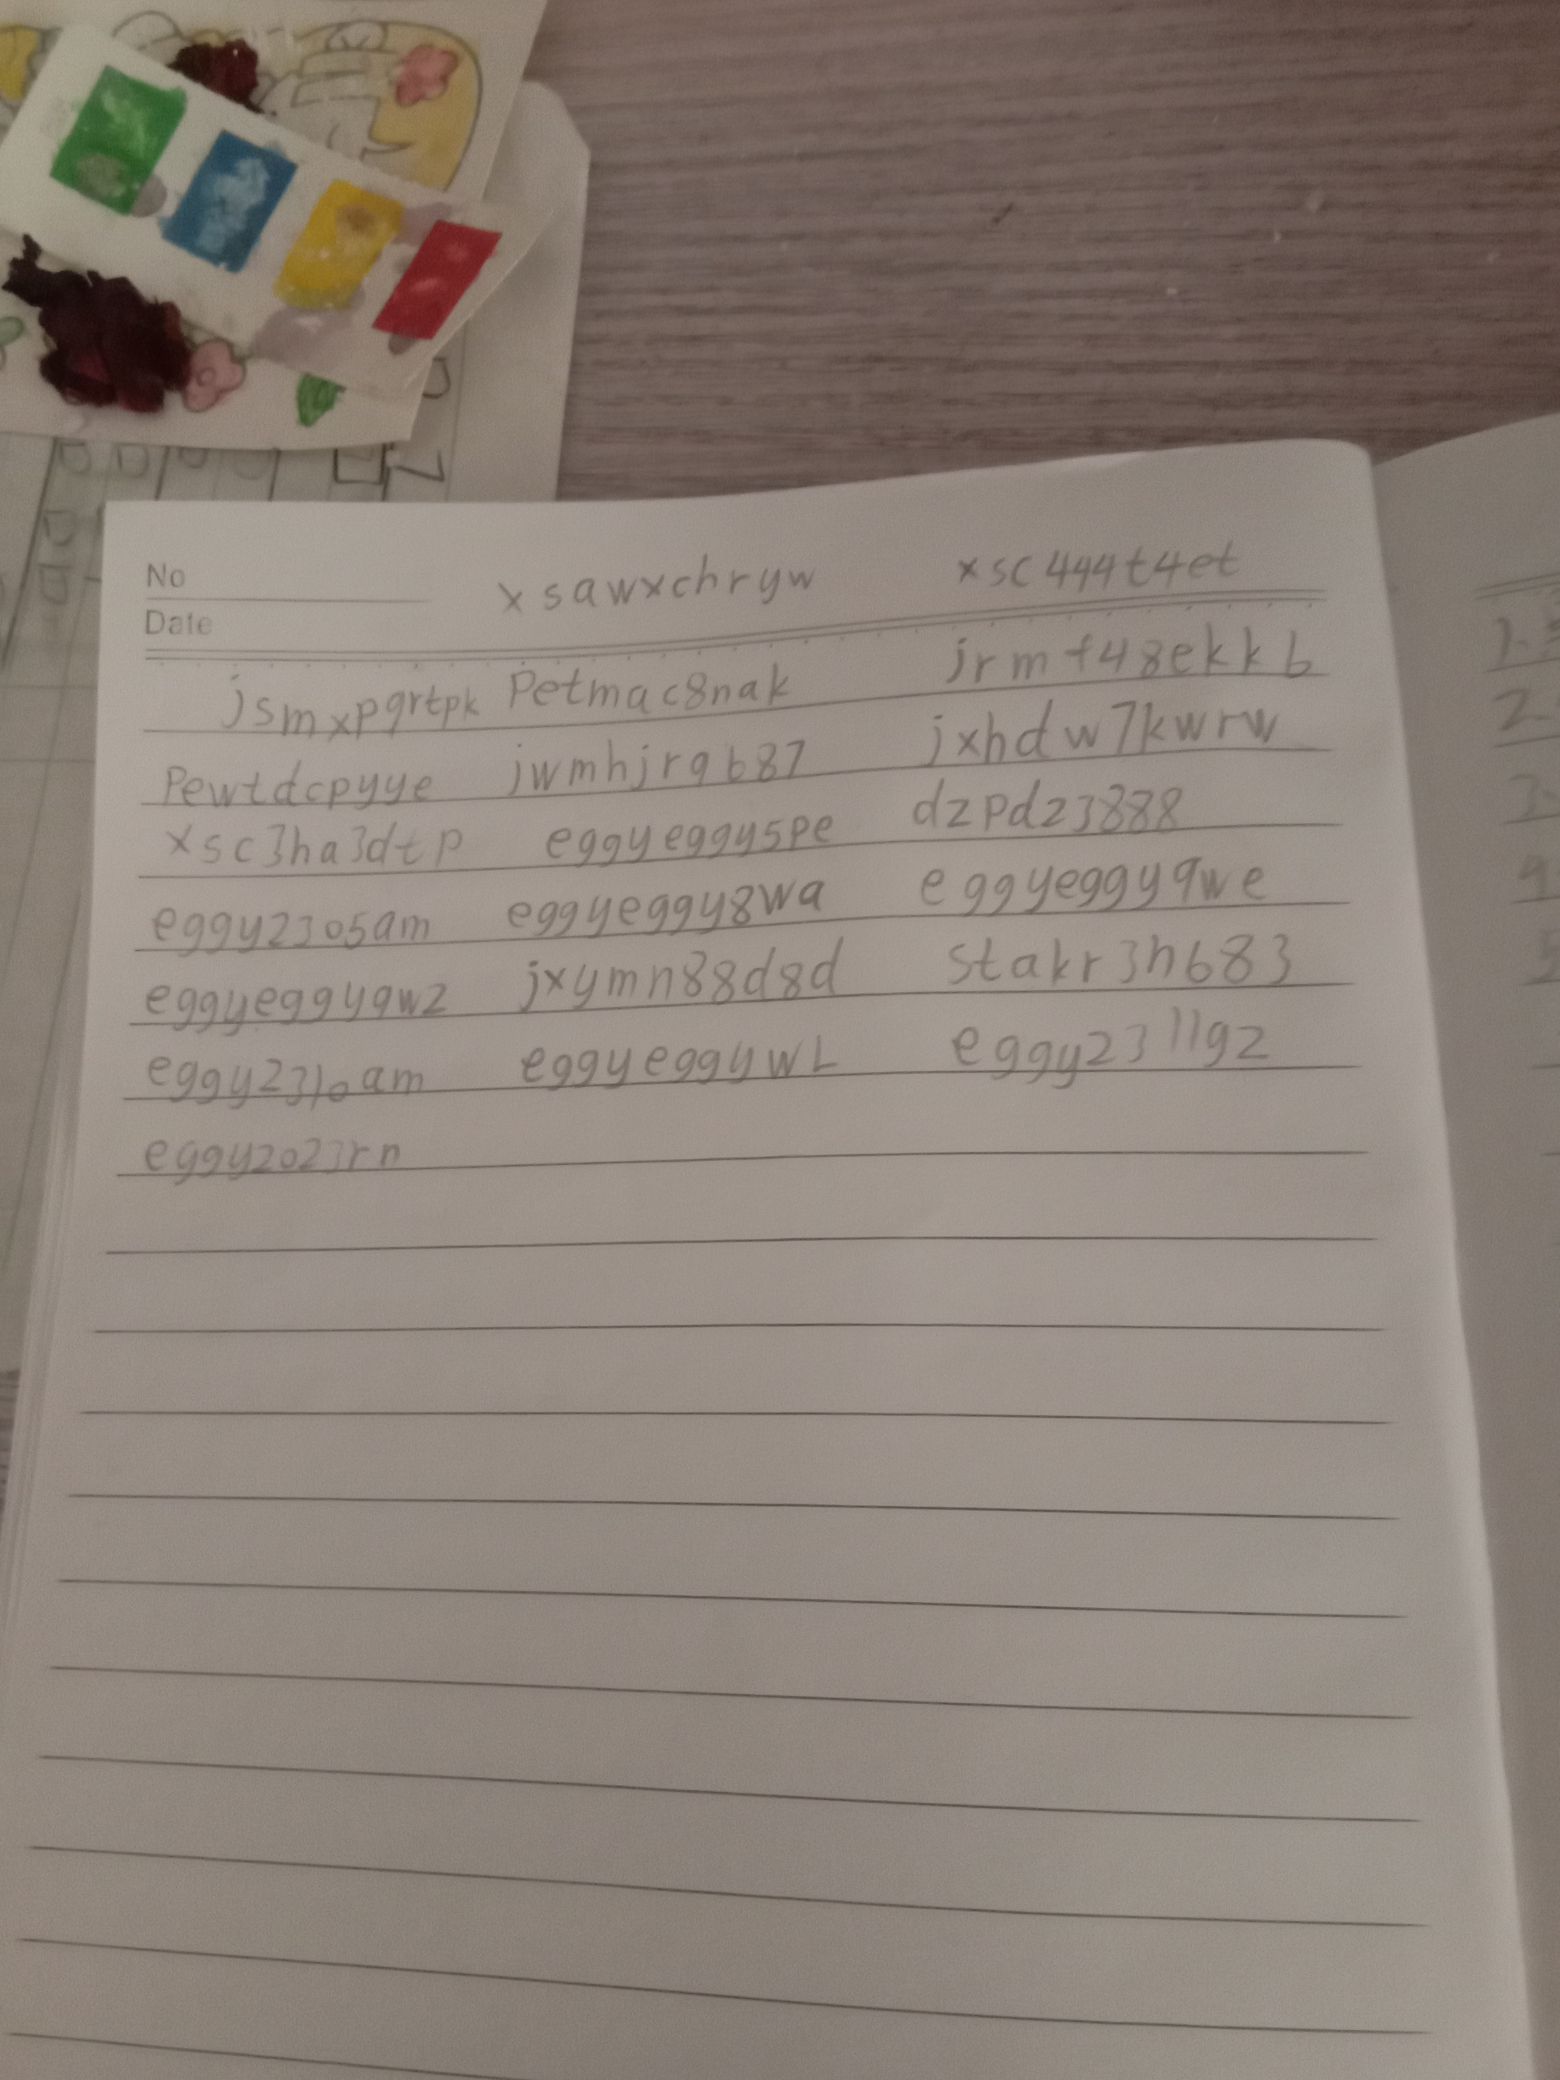 No xsawxchryw xsc444t4et
Date
jsmxpgrtpk Petmac8nak jrmf48ekkb
Pewtdcpyye jwmhjrgb87 jxhdw7kwrw
xsc3ha3dtp eggyeggy5pe dzpdz3888
eggy2305am eggyeggy8wa eggyeggy9we
eggyeggyqwz jxymn88d8d stakr3h683
eggy2310am eggyeggywL eggy2311gz
eggy2023rn